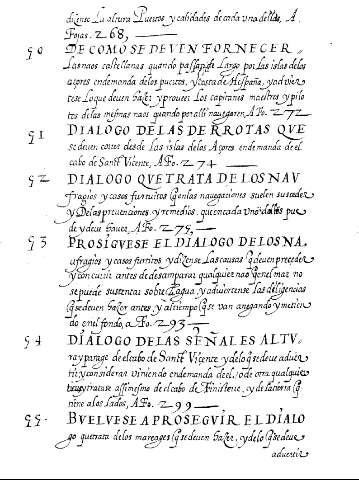 dizense Lu altura Puertos y calidades de cada una dellas, A
Fojas. 268,
90 DE COMO SE DEVEN FORNECER
Las naos castellanas quando passan de Largo por las islas delos
açores endemanda delos puertos, y costa de Hespaña, y advier
tese Loque deven hazer y proveer Los capitanes maestres y pilo
tos delas mesmas naos quando por alli navegaren, A Fo. 272
91 DIALOGO DE LAS DERROTAS QUE
se deven correr desde Las islas delos Açores endemanda del
cabo de Sanct Vicente, A Fo. 274
92 DIALOGO QUE TRATA DE LOS NAU
fragios y casos furtuitos q̃ enlas navegaciones suelen succeder
y Delas prevenciones y remedios, que encada uno dellos pue
de y deve haver, A Fo. 275,
93 PROSIGUESE EL DIALOGO DE LOS NA,
ufragios y casos furtitos y dizense Las causas q̃ deven preceder
y concurrir antes de desamparar qualquier nao q̃ enel mar no
se puede sustentar sobre El agua, y adviertense las diligencias
q̃ se deven hazer antes, y al tiempo q̃ se van anegando y metien
do enel fondo, a Fo. 293
94 DIALOGO DE LAS SEÑALES ALTU,
ra y parage de el cabo de Sanct Vicente y delo q̃ se deve adver
tir y considerar viniendo endemanda del, o de otra qualquier
y tratase assimesmo de el cabo de Finisterre, y de la costa q̃
tiene a los Lados, A Fo. 299
95. BUELVESE A PROSEGUIR EL DIALO
go que trata delos mareages q̃ se deven hazer, y delo q̃ se deve
advertir